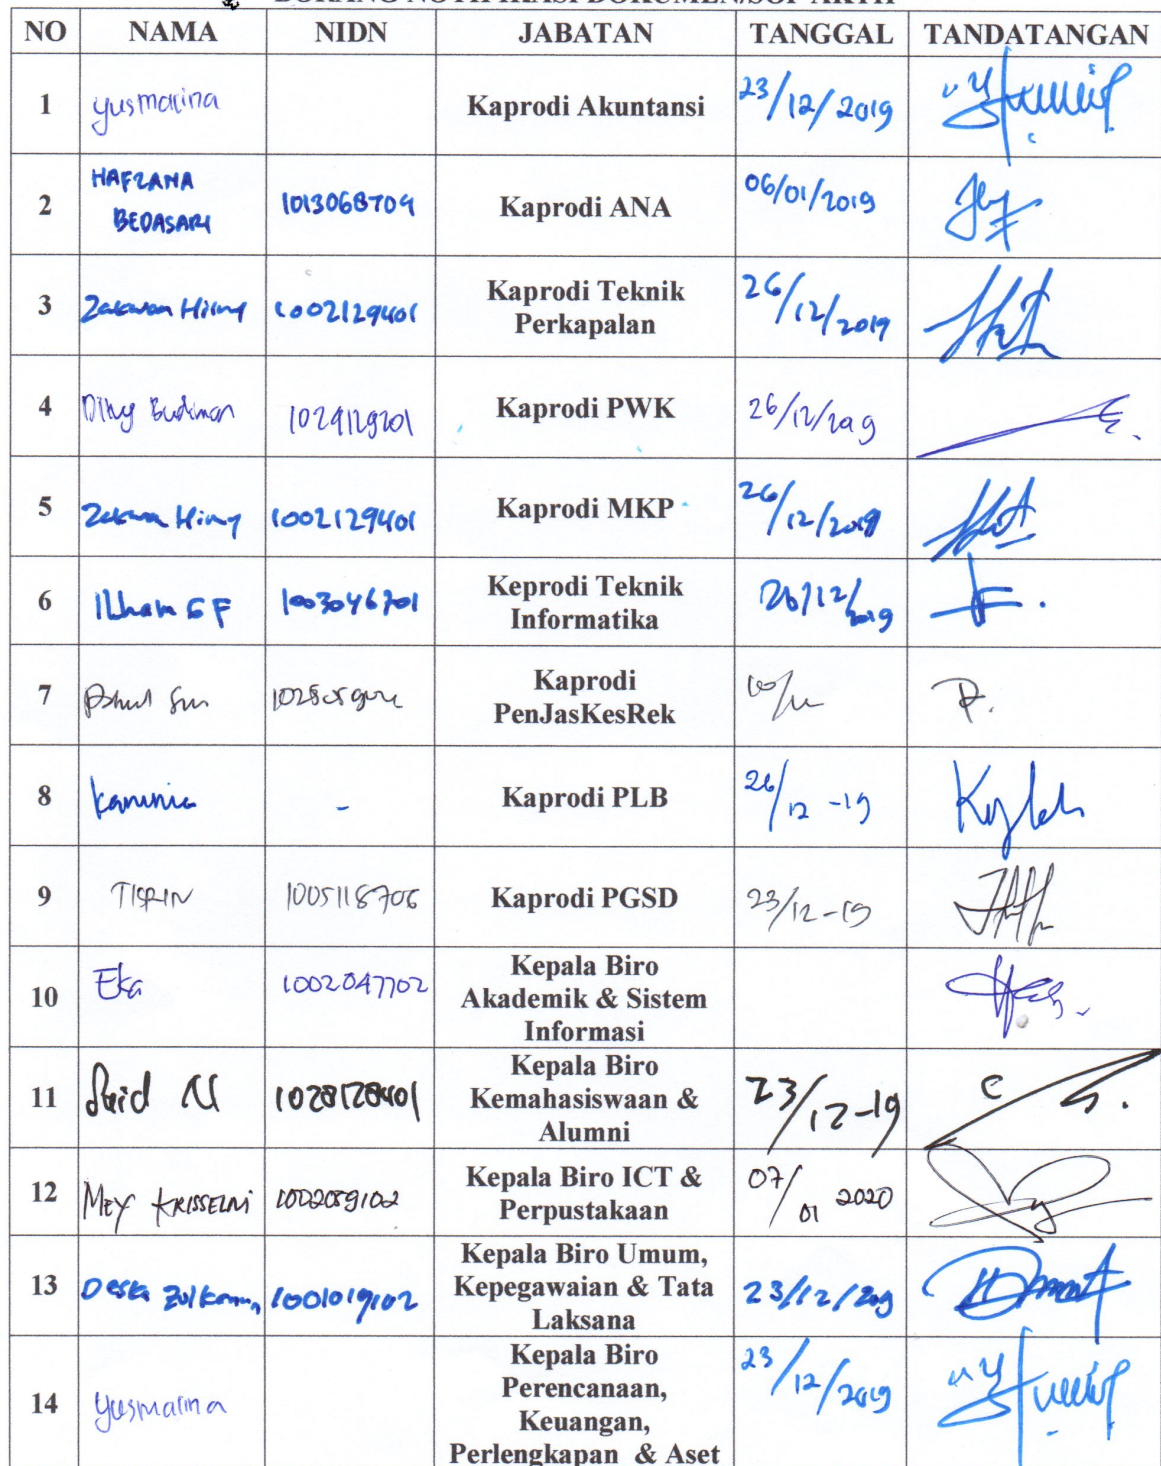 BORANG NOTIFIKASI DOKUMEN/SOP AKTIF
NO NAMA NIDN JABATAN TANGGAL TANDATANGAN
1 yusmarina Kaprodi Akuntansi 23/12/2019
2 HAFZANA BEDASARI 1013068709 Kaprodi ANA 06/01/2019
3 1002129401 Kaprodi Teknik Perkapalan 26/12/2019
4 Budiman 1029129201 Kaprodi PWK 26/12/2019
5 1002129401 Kaprodi MKP 26/12/2019
6 Ilham EF 1003046701 Keprodi Teknik Informatika 26/12/2019
7 Kaprodi PenJasKesRek
8 - Kaprodi PLB 26/12-19
9 1005118706 Kaprodi PGSD 23/12-19
10 Eka 1002047702 Kepala Biro Akademik & Sistem Informasi
11 Said N 1028128401 Kepala Biro Kemahasiswaan & Alumni 23/12-19
12 MEY KRISSELNI 1002059102 Kepala Biro ICT & Perpustakaan 07/01 2020
13 1001019102 Kepala Biro Umum, Kepegawaian & Tata Laksana 23/12/2019
14 yusmarina Kepala Biro Perencanaan, Keuangan, Perlengkapan & Aset 23/12/2019